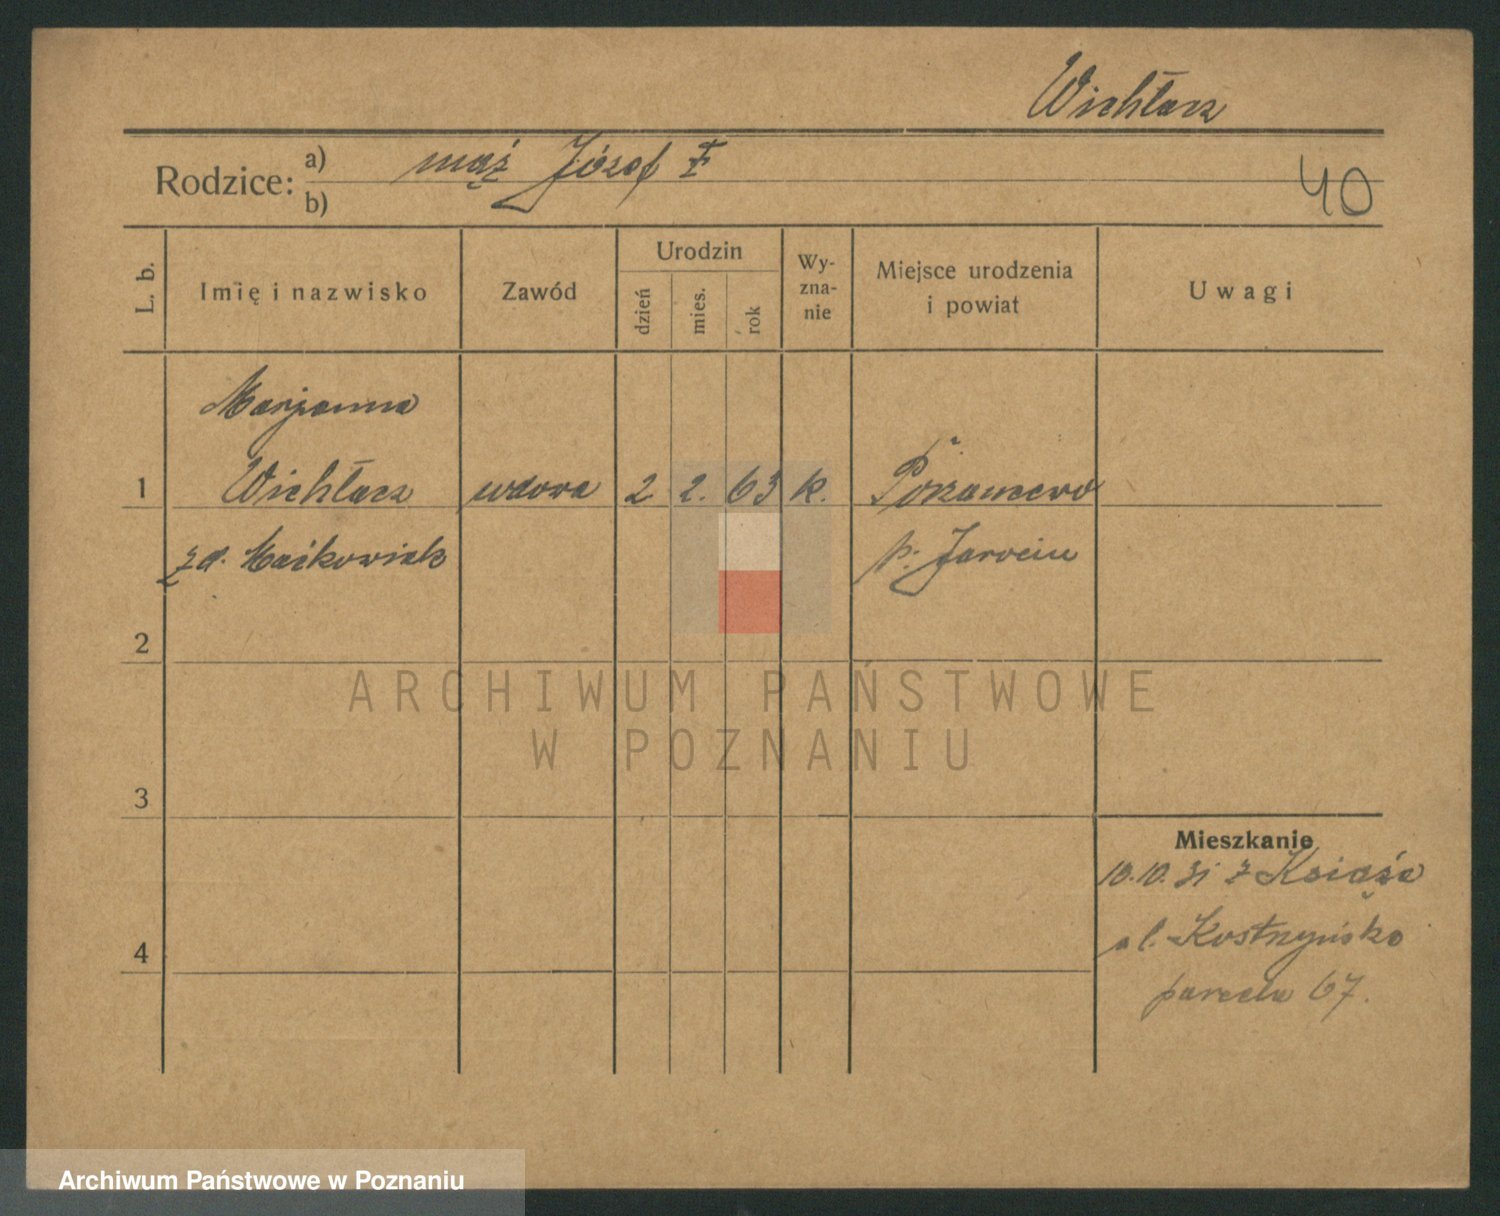 Wichłacz
Rodzice: a) mąż Józef ‡
b)
40
L. b.
Imię i nazwisko
Zawód
Urodzin
dzień
mies.
rok
Wy-
zna-
nie
Miejsce urodzenia
i powiat
Uwagi
Marjanna
1 Wichłacz wdowa 2 2. 63 k.
zd. Maćkowiak p. Jarocin
2
ARCHIWUM PAŃSTWOWE
W POZNANIU
3
Mieszkanie
10.10.31 z Książa
ul. Kostrzyńska
4
parcela 67.
Archiwum Państwowe w Poznaniu